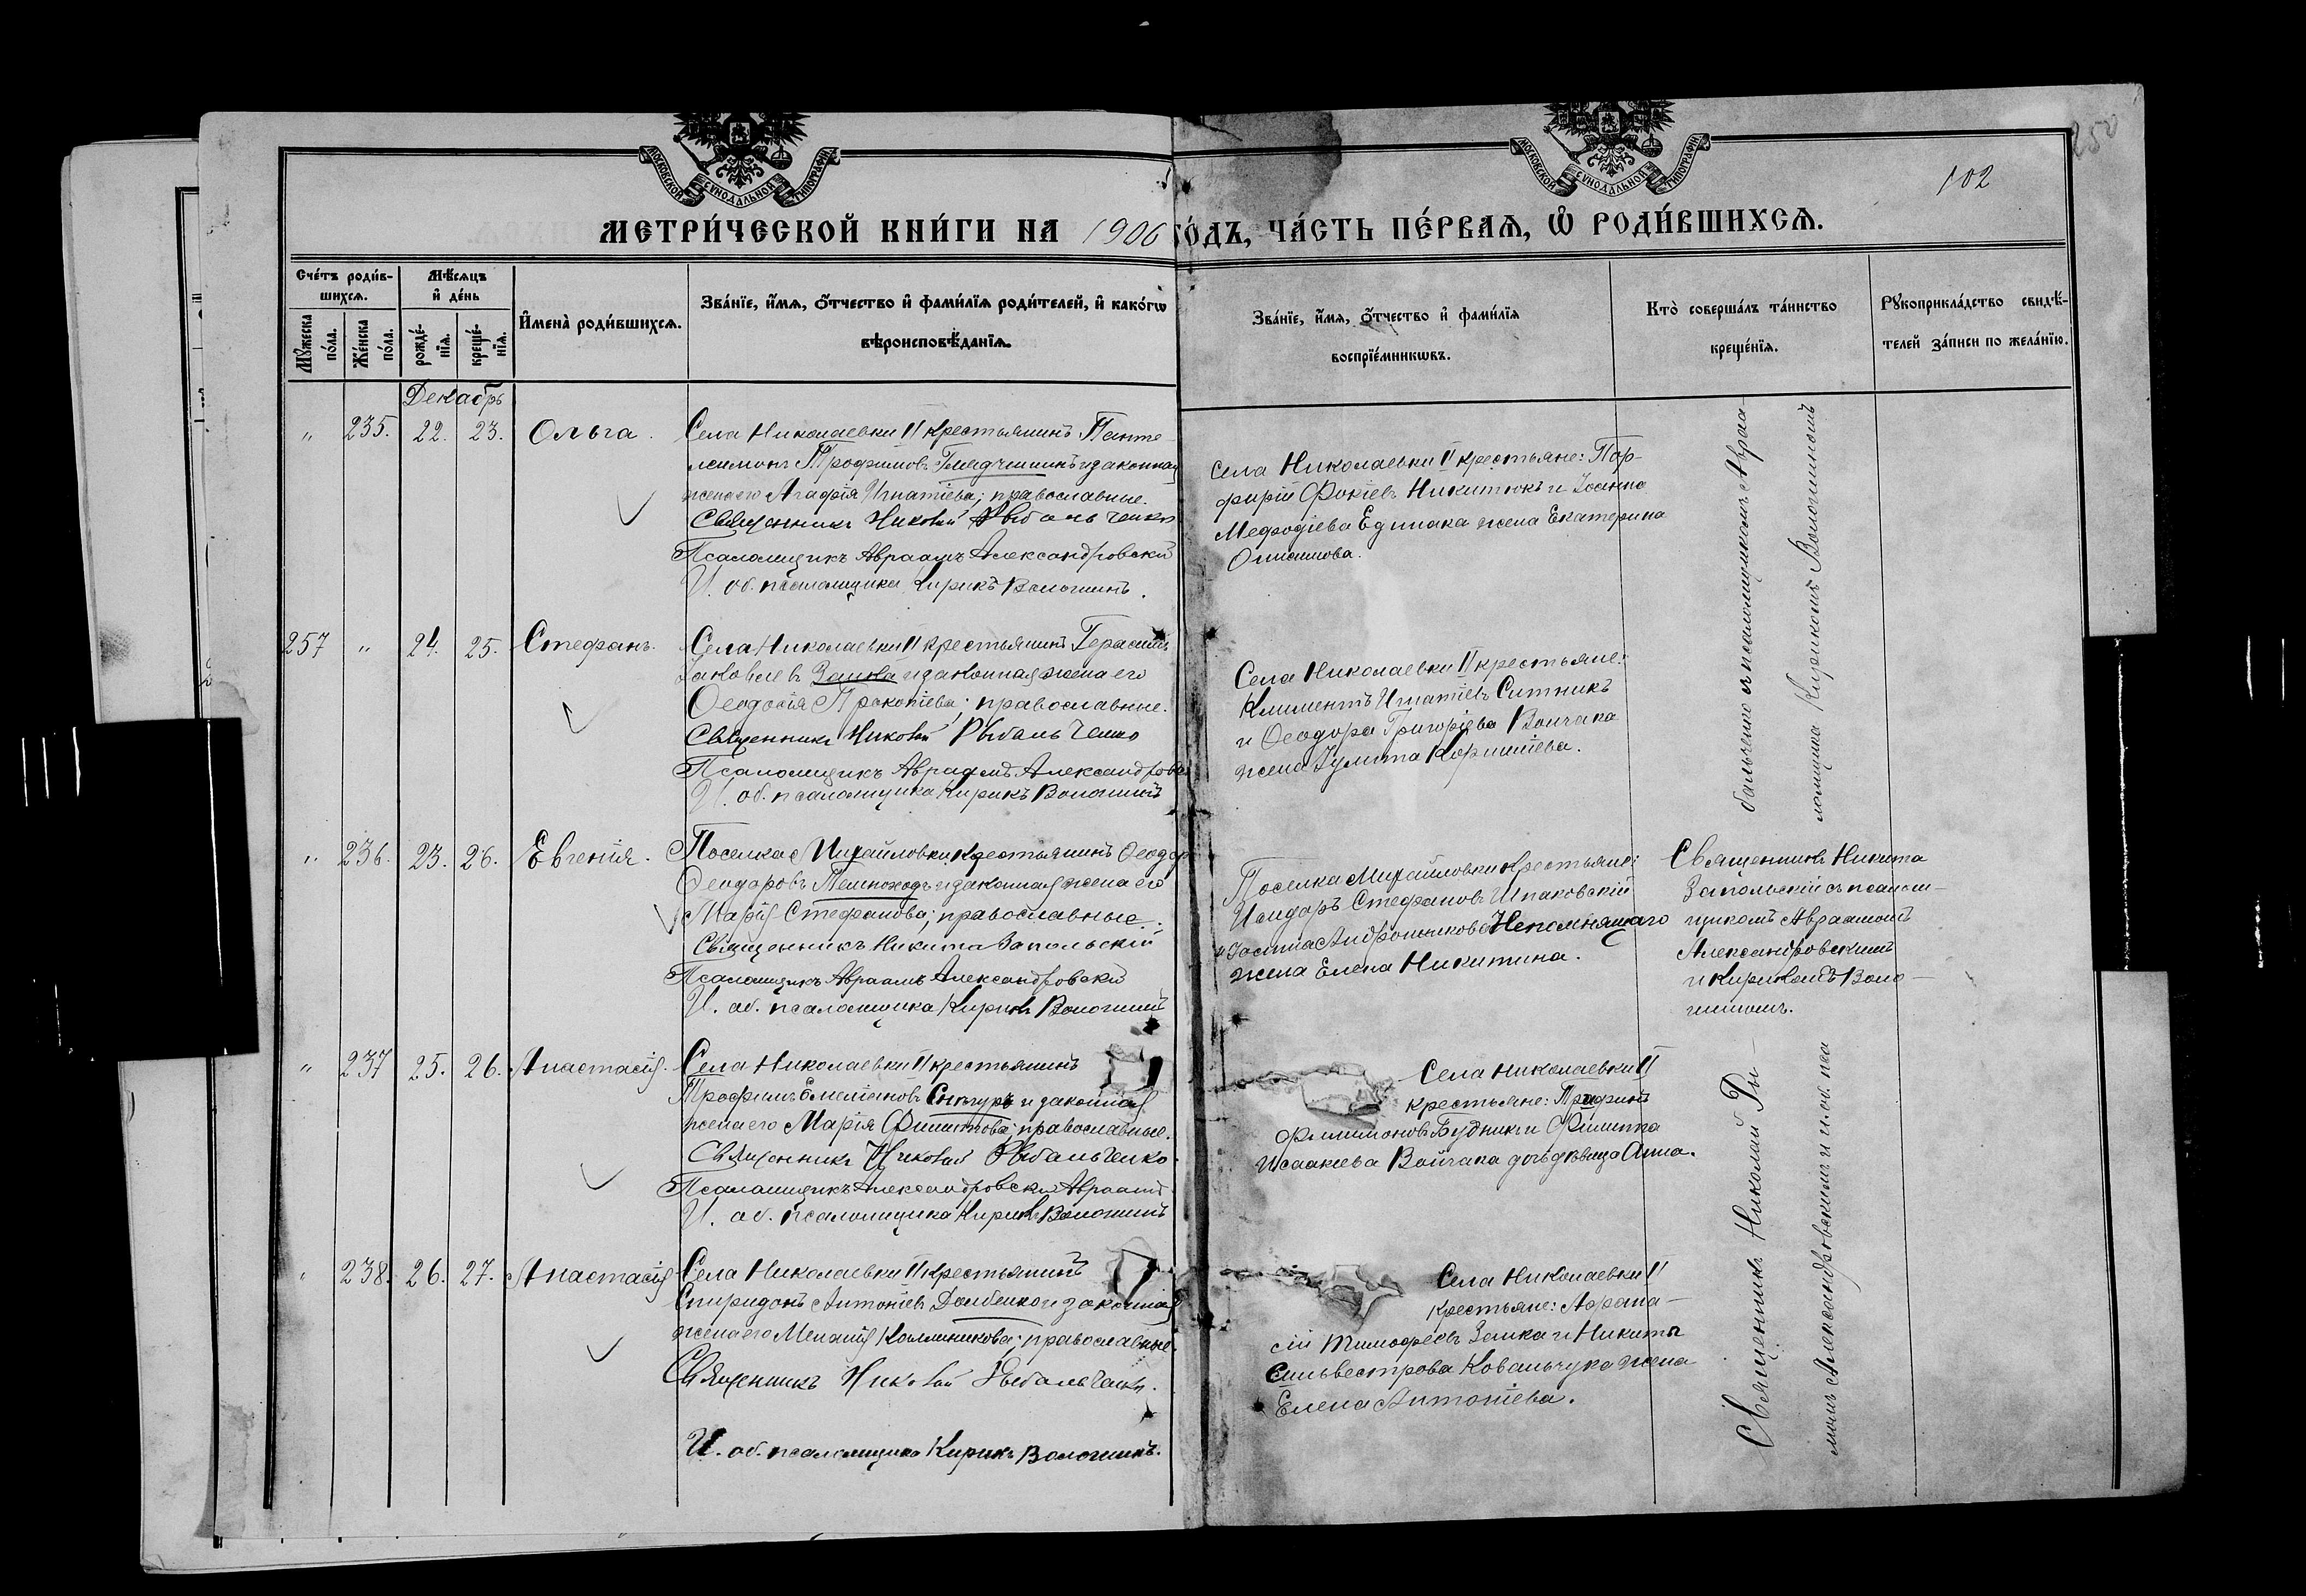 250
102
МОСКОВСКОЙ СѴНОДАЛЬНОЙ ТИПОГРАФІИ
МОСКОВСКОЙ СѴНОДАЛЬНОЙ ТИПОГРАФІИ
МЕТРИ́ЧЕСКОЙ КНИ́ГИ НА 1906 ГО́ДЪ, ЧА́СТЬ ПЕ́РВАѦ, Ѡ҆ РОДИ́ВШИХСѦ.
Сче́тъ роди́в-
шихсѧ.
Мꙋ́жеска по́ла.
Же́нска по́ла.
Мѣ́сѧцъ
и҆ де́нь
рожде́-
нїѧ.
креще́-
нїѧ.
И҆мена̀ роди́вшихсѧ.
Зва́нїе, и҆́мѧ, ѻ҆́тчество и҆ фами́лїѧ роди́телей, и҆ како́гѡ
вѣроисповѣ́данїѧ.
Зва́нїе, и҆́мѧ, ѻ҆́тчество и҆ фами́лїѧ
воспрїе́мникѡвъ.
Кто̀ соверша́лъ та́инство
креще́нїѧ.
Рꙋкоприкла́дство свидѣ́-
телей за́писи по жела́нїю.
Декабрь
" 235. 22. 23. Ольга.
Села Николаевки II крестьянинъ Панте-
леимонъ Трофимовъ и законная
жена его Агафія Игнатіева; православные.
Священникъ Николай Рыбальченко
Псаломщикъ Авраамъ Александровскій
И. об. псаломщика Кирикъ Волошинъ.
Села Николаевки II крестьяне: Пор-
фирій Фокіевъ Никитюкъ и Іоанна
Мефодіева Едынака жена Екатерина
Онисимова.
257 " 24. 25. Стефанъ.
Села Николаевки II крестьянинъ Герасимъ
Іаковлевъ Заика и законная жена его
Ѳеодосія Прокопіева; православные.
Священникъ Николай Рыбальченко
Псаломщикъ Авраамъ Александровскій
И. об. псаломщика Кирикъ Волошинъ
Села Николаевки II крестьяне:
Климентъ Игнатіевъ Ситникъ
и Ѳеодора Григоріева Войчака
жена Іулита Корнилієва.
" 236. 23. 26. Евгенія.
Поселка Михайловки крестьянинъ Ѳеодоръ
Ѳеодоровъ Пешеходъ и законная жена его
Марія Стефанова; православные.
Священникъ Никита Запольскій
Псаломщикъ Авраамъ Александровскій
И. об. псаломщика Кирикъ Волошинъ
Поселка Михайловки крестьяне:
Исидоръ Стефановъ Шпаковскій
и Андроникова Непомнящаго
жена Елена Никитина.
Священникъ Никита
Запольскій съ псалом-
щикомъ Авраамомъ
Александровскимъ
и Кирикомъ Воло-
шиномъ.
" 237 25. 26. Анастасія.
Села Николаевки II крестьянинъ
Трофимъ Емеліановъ Снѣгуръ и законная
жена его Марія Филиппова; православные.
Священникъ Николай Рыбальченко.
Псаломщикъ Александровскій Авраамъ
И. об. псаломщика Кирикъ Волошинъ
Села Николаевки II
крестьяне:
Филимоновъ Будникъ и Филиппа
Исаакіева Войчака дочь дѣвица Анна.
" 238. 26. 27. Анастасія
Села Николаевки II крестьянинъ
Спиридонъ Антоніевъ и законная
жена его Меланія Каллиникова; православные.
Священникъ Николай Рыбальченко.
И. об. псаломщика Кирикъ Волошинъ.
Села Николаевки II
крестьяне: Афана-
сій Тимофеевъ Заика и Никиты
Сильвестрова Ковальчука жена
Елена Антоніева.
Священникъ Николай Ры-
бальченко съ псаломщикомъ Авраа-
момъ Александровскимъ и и. об. пса
ломщика Кирикомъ Волошиномъ